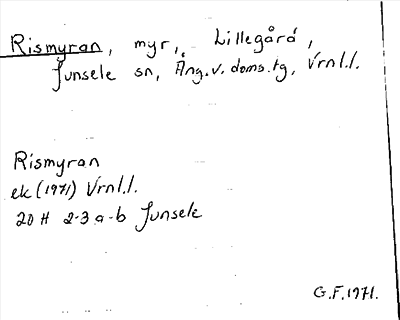 Rismyran, myr, Lillegård,
Junsele sn, Ång.v.doms.tg, Vrnl.l.
Rismyran
ek (1971) Vrnl.l.
20 H 2-3 a-b Junsele
G.F.1971.